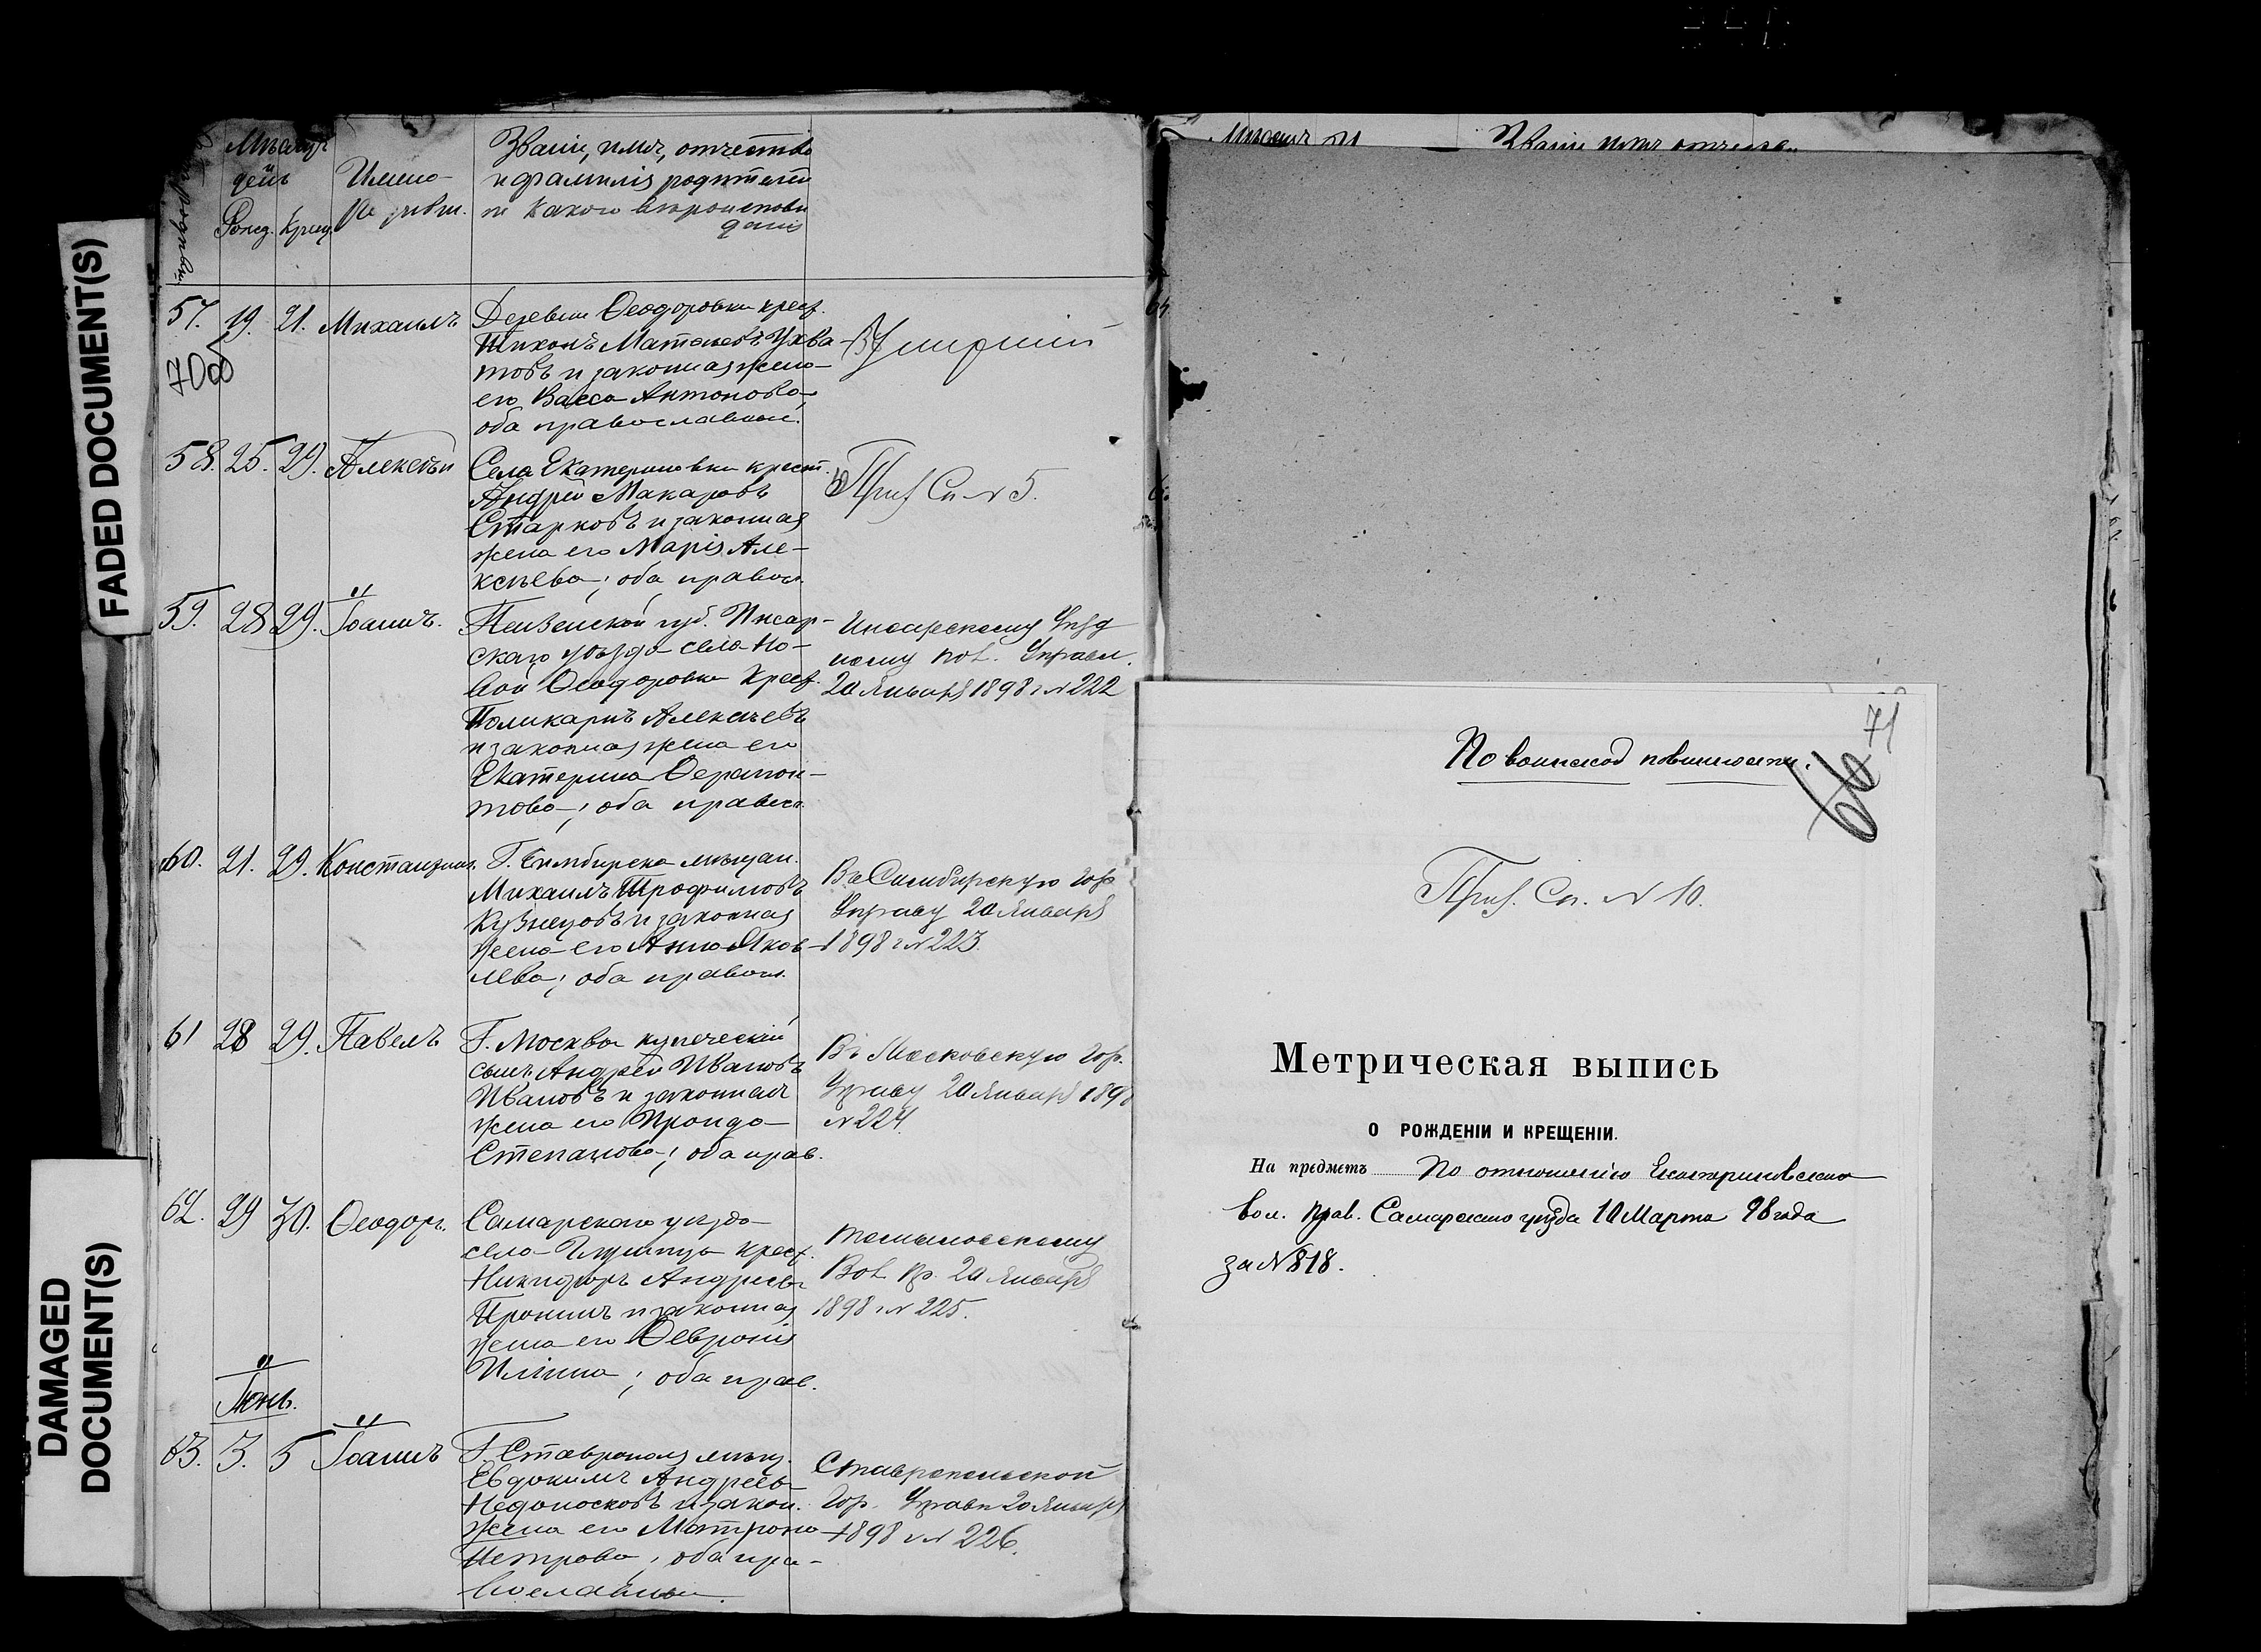 FADED DOCUMENT(S)
DAMAGED DOCUMENT(S)
Мѣсяцъ
и
день
Рожд. Крещ.
Имена
Званіе, имя, отчество
и фамилія родителей
и какого вѣроиспове
данія
57. 19. 21. Михаилъ
70об
Деревни Ѳеодоровки крест.
Тихонъ Матвеевъ Ухва-
товъ и законная жена
его Васса Антонова,
оба православные.
Умершій
58. 25. 29. Алексѣй
Села Екатериновки крест.
Андрей Макаровъ
Старковъ и законная
жена его Марія Але-
ксѣева; оба правосл.
Приз. Сп. N 5.
59. 28 29. Іоаннъ.
Пензенской губ. Инсар-
скаго уѣзда села Но-
вой Ѳеодоровки Крест.
Поликарпъ Алексѣевъ
и законная жена его
Екатерина Ферапон-
това; оба правосл.
Инсарскому Уѣзд
ному пол. Управл.
20 Января 1898 г N 222
60. 21. 29. Константинъ.
Г. Симбирска мѣщан.
Михаилъ Трофимовъ
Кузнецовъ и законная
жена его Анна Яков-
лева; оба правосл.
Въ Симбирскую Гор.
Управу 20 Января
1898 г N 223.
61 28 29. Павелъ
Г. Москвы купеческій
сынъ Андрей Ивановъ
Ивановъ и законная
жена его Ираида
Степанова; оба прав.
Въ Московскую Гор.
Управу 20 Января 1898
N 224.
62. 29 30. Ѳеодоръ.
Самарскаго уѣзда
села крест.
Никифоръ Андреевъ
Пронинъ и законная
жена его Февронія
Ильина; оба прав.
Вол. Пр. 20 Января
1898 г N 225.
Іюнь.
63. 3. 5 Іоаннъ
Г. Ставрополя мѣщ.
Евдокимъ Андреевъ
Недоносковъ и закон.
жена его Матрона
Петрова; оба пра-
вославные.
Ставропольской
Гор. Управѣ 20 Января
1898 г N 226.
Мѣсяцъ и
Званіе имя отчество
71
66
По воинской повинности.
Приз. Сп. N 10.
Метрическая выпись
О РОЖДЕНІИ И КРЕЩЕНІИ.
На предметъ По отношенію Екатериновскаго
вол. прав. Самарскаго уѣзда 10 Марта 98 года
за N 818.